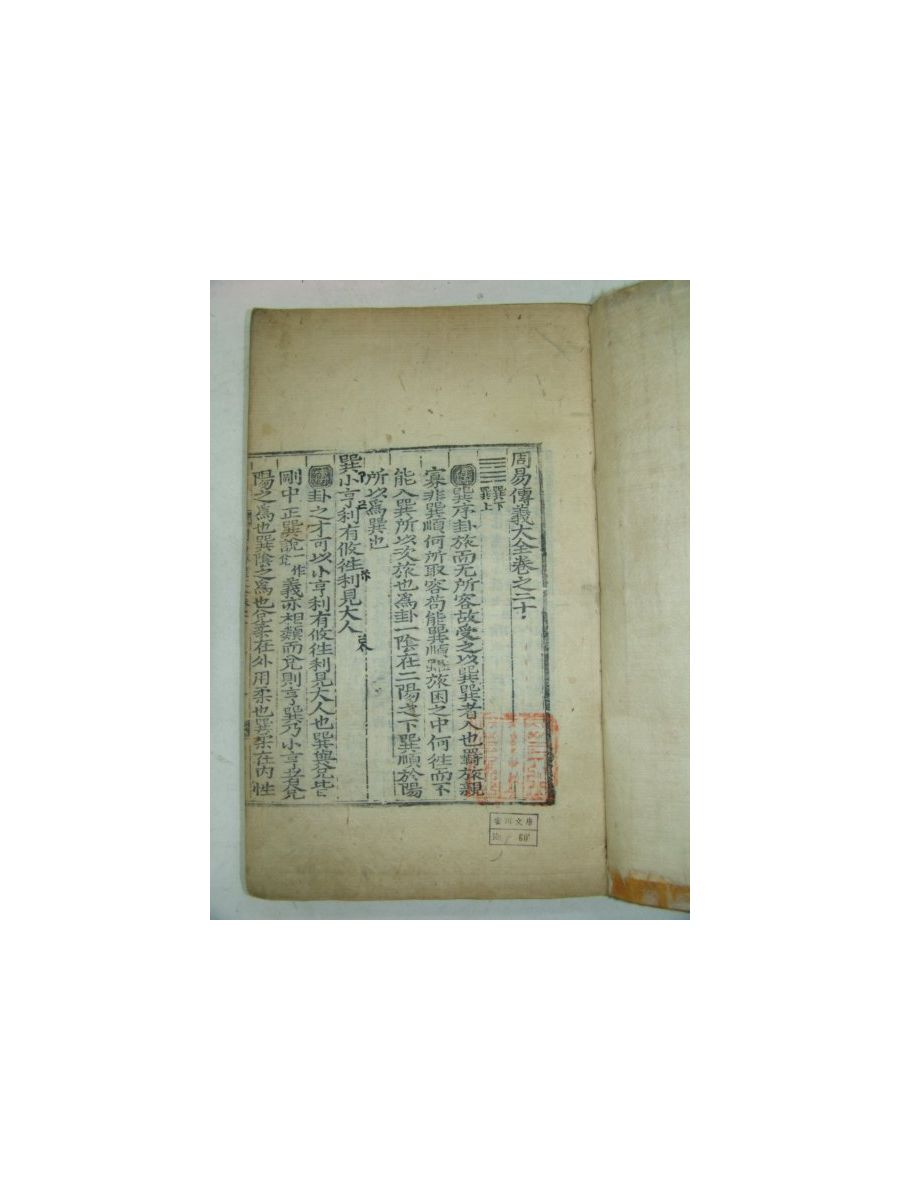 周易傳義大全卷之二十
巽下
巽上
傳巽序卦旅而无所容故受之以巽巽者入也羇旅親
寡非巽順何所取容苟能巽順雖旅困之中何徃而不
能入巽所以次旅也爲卦一陰在二陽之下巽順於陽
所以爲巽也
巽小亨利有攸徃利見大人
傳卦之才可以小亨利有攸徃利見大人也巽與兌皆
剛中正巽說一作兌義亦相類而兌則亨巽乃小亨者兌
陽之爲也巽陰之爲也兌柔在外用柔也巽柔在內性
文庫
60